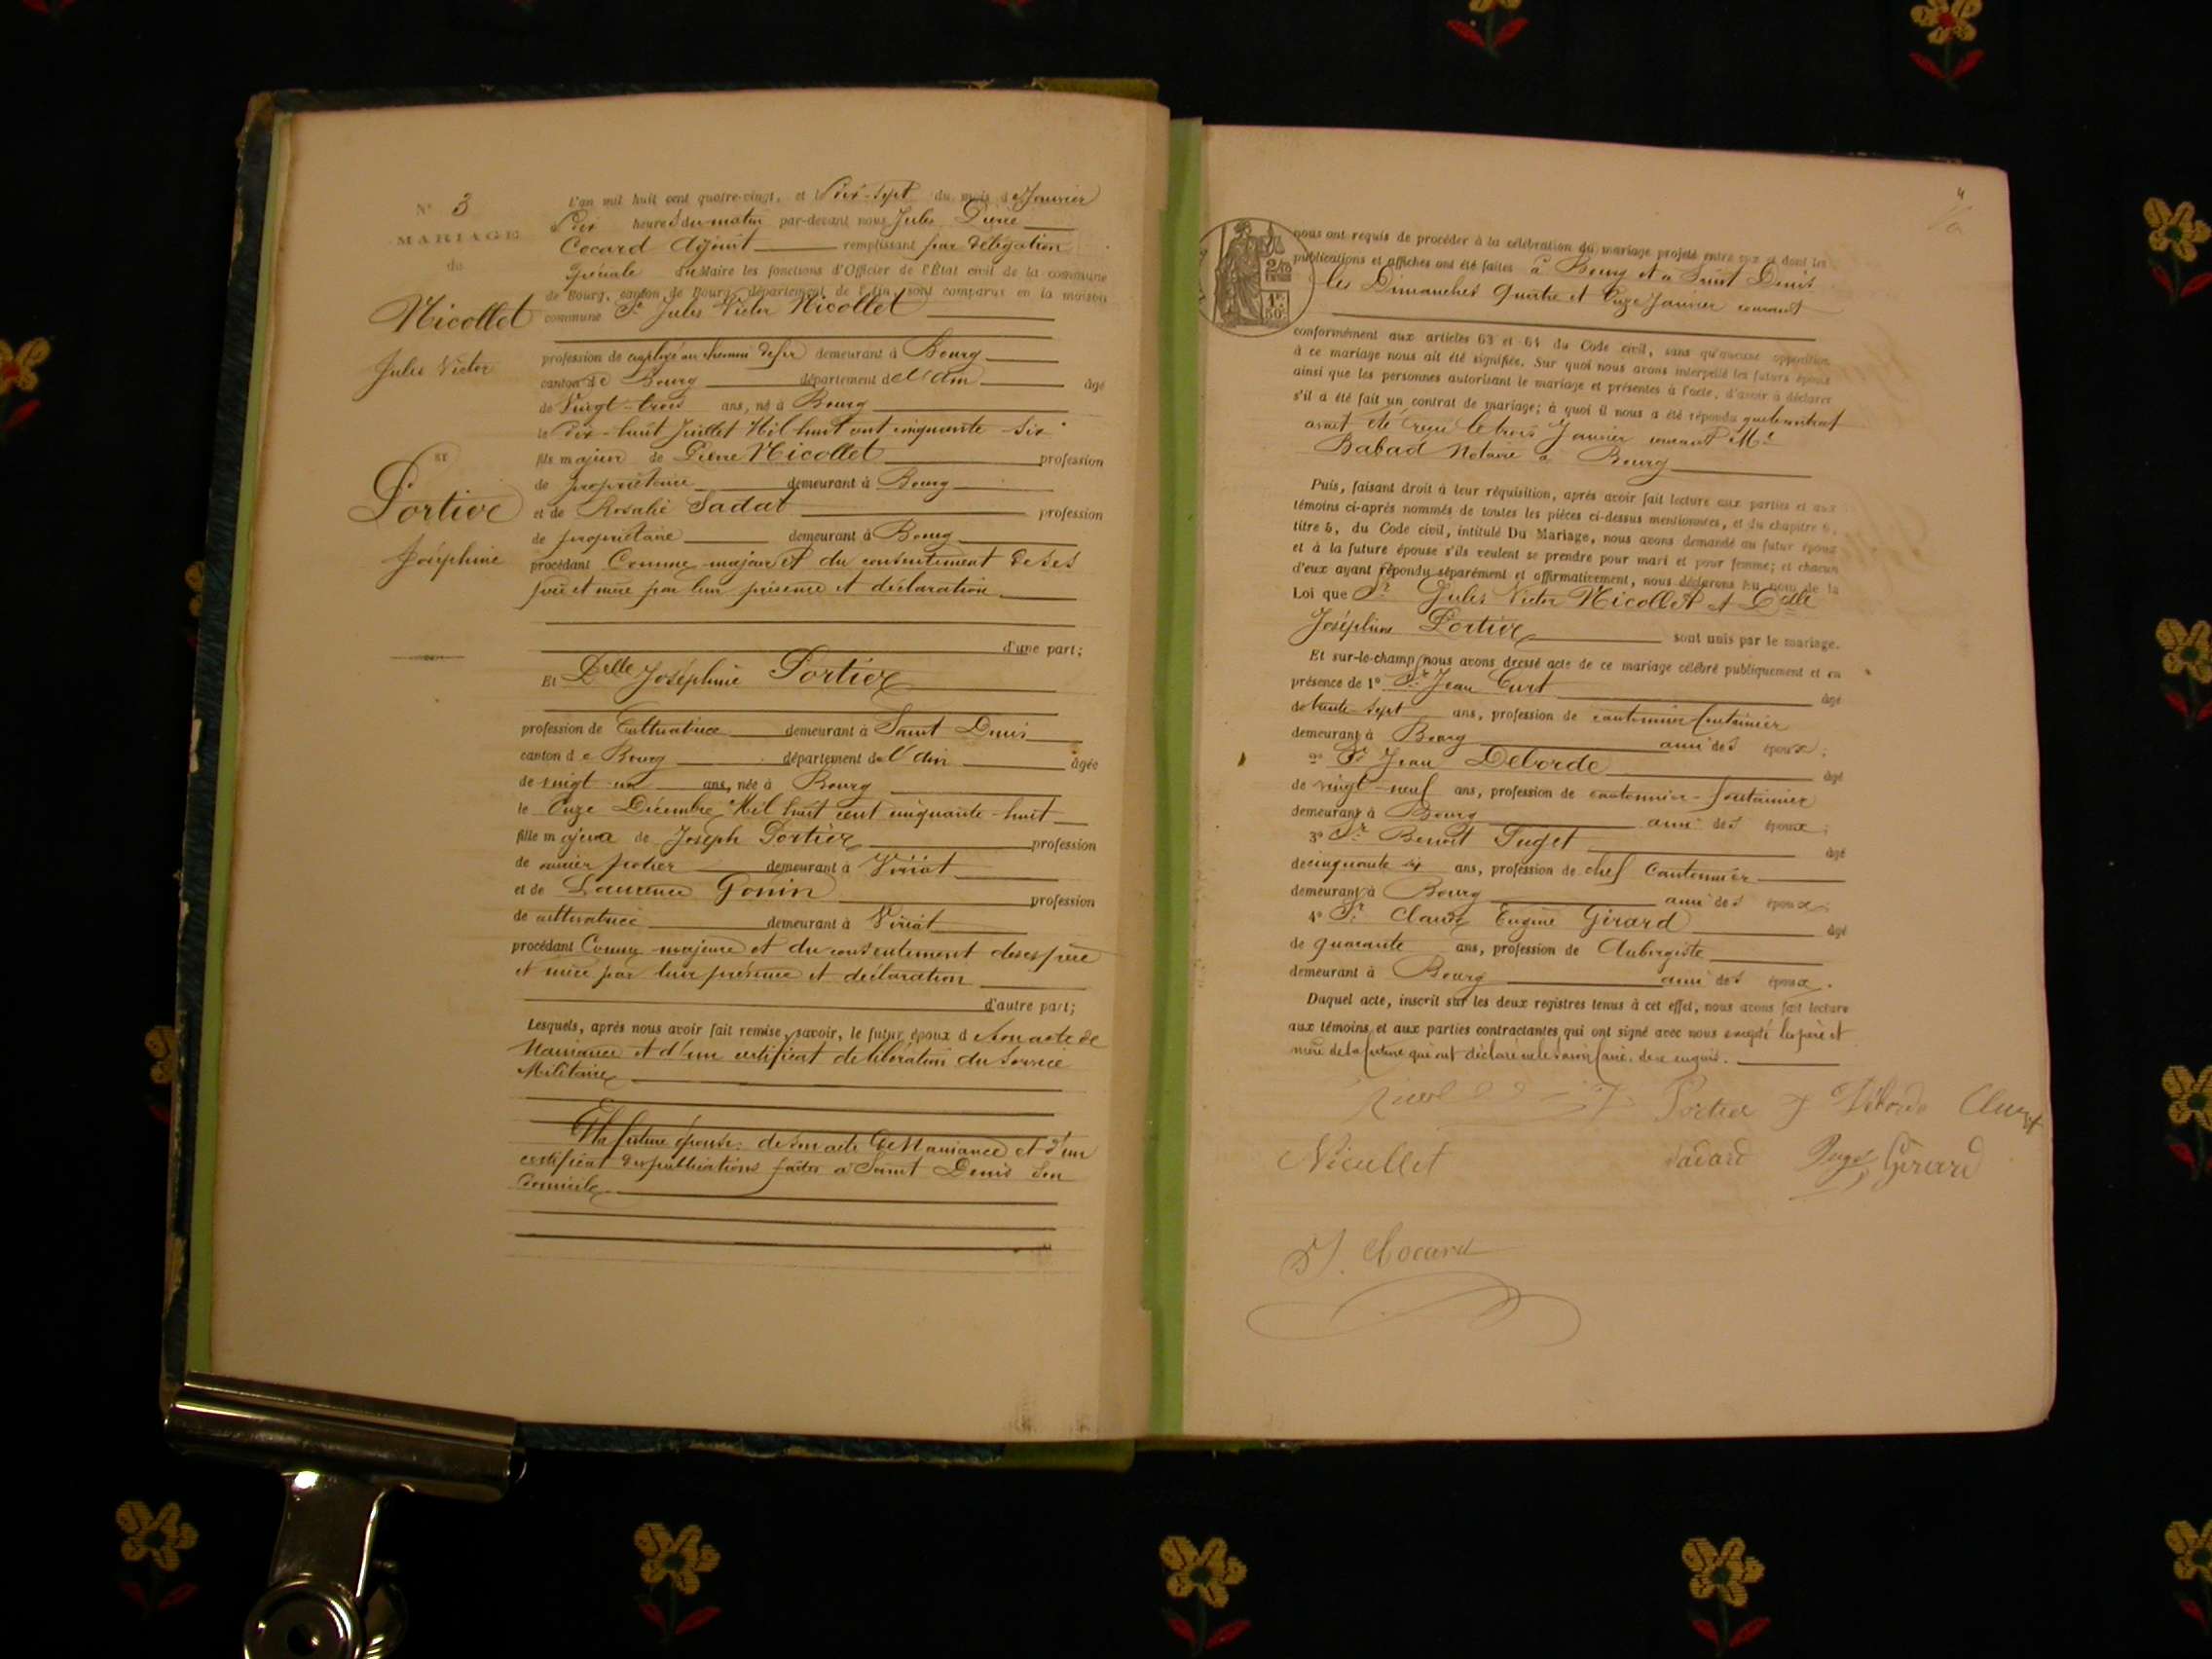 N° 3
MARIAGE
du
Nicollet
Jules Victor
et
Portier
Joséphine
L'an mil huit cent quatre-vingt, et le dix-sept du mois de Janvier
à Dix heures du matin par-devant nous Jules Pierre
Cocard Adjoint remplissant par délégation
Spéciale du Maire les fonctions d'Officier de l'État civil de la commune
de Bourg, canton de Bourg, département de l'Ain, sont comparus en la maison
commune Sr Jules Victor Nicollet
profession de employé au chemin de fer demeurant à Bourg
canton de Bourg département de l'Ain âgé
de Vingt-trois ans, né à Bourg
le dix-huit Juillet Mil huit cent cinquante-six
fils majeur de Pierre Nicollet profession
de propriétaire demeurant à Bourg
et de Rosalie Sadat profession
de propriétaire demeurant à Bourg
procédant Comme majeur et du consentement de ses
père et mère par leur présence et déclaration
d'une part;
Et Delle Joséphine Portier
profession de Cultivatrice demeurant à Saint Denis
canton de Bourg département de l'Ain âgée
de vingt un ans, née à Bourg
le Onze Décembre Mil huit cent cinquante-huit
fille majeure de Joseph Portier profession
de ouvrier potier demeurant à Viriat
et de Laurence Gonin profession
de cultivatrice demeurant à Viriat
procédant Comme majeure et du consentement de ses père
et mère par leur présence et déclaration
d'autre part;
Lesquels, après nous avoir fait remise, savoir, le futur époux de son acte de
Naissance et d'un certificat de libération du Service
Militaire
Et la future épouse: de son acte de Naissance et d'un
certificat des publications faites à Saint Denis son
domicile
4
nous ont requis de procéder à la célébration du mariage projeté entre eux et dont les
publications et affiches ont été faites à Bourg et à Saint Denis
les Dimanches Quatre et Onze Janvier courant
conformément aux articles 63 et 64 du Code civil, sans qu'aucune opposition
à ce mariage nous ait été signifiée. Sur quoi nous avons interpellé les futurs époux
ainsi que les personnes autorisant le mariage et présentes à l'acte, d'avoir à déclarer
s'il a été fait un contrat de mariage; à quoi il nous a été répondu que le contrat
avait été reçu le trois Janvier courant Me
Babad Notaire à Bourg
Puis, faisant droit à leur réquisition, après avoir fait lecture aux parties et aux
témoins ci-après nommés de toutes les pièces ci-dessus mentionnées, et du chapitre 6,
titre 5, du Code civil, intitulé Du Mariage, nous avons demandé au futur époux
et à la future épouse s'ils veulent se prendre pour mari et pour femme; et chacun
d'eux ayant répondu séparément et affirmativement, nous déclarons au nom de la
Loi que Sr Jules Victor Nicollet et Delle
Joséphine Portier sont unis par le mariage.
Et sur-le-champ nous avons dressé acte de ce mariage célébré publiquement et en
présence de 1° Sr Jean Curt âgé
de trente-sept ans, profession de cantonnier-fontainier
demeurant à Bourg ami des époux;
2° Sr Jean Deborde âgé
de vingt-neuf ans, profession de cantonnier-fontainier
demeurant à Bourg ami des époux;
3° Sr Benoit Puget âgé
de cinquante six ans, profession de chef Cantonnier
demeurant à Bourg ami des époux;
4° Sr Claude Eugène Girard âgé
de quarante ans, profession de Aubergiste
demeurant à Bourg ami des époux.
Duquel acte, inscrit sur les deux registres tenus à cet effet, nous avons fait lecture
aux témoins et aux parties contractantes qui ont signé avec nous excepté les père et
mère de la future qui ont déclaré ne le savoir faire. de ce enquis.
Portier J Deborde
Nicollet Puget Girard
J. Cocard